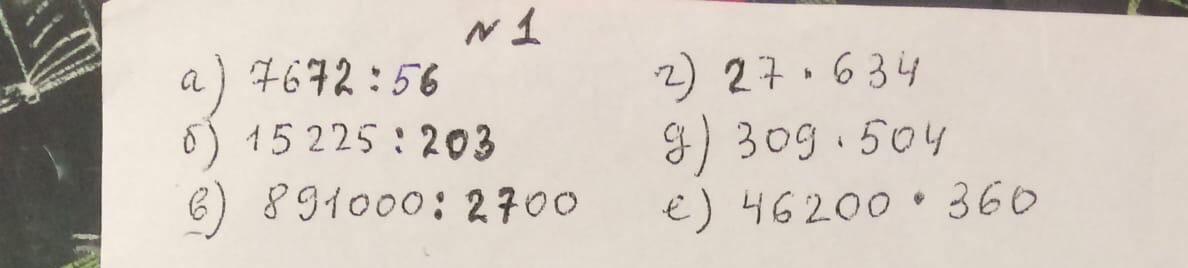 № 1
а) 7672 : 56
б) 15225 : 203
в) 891000 : 2700
г) 27 · 634
д) 309 · 504
е) 46200 · 360